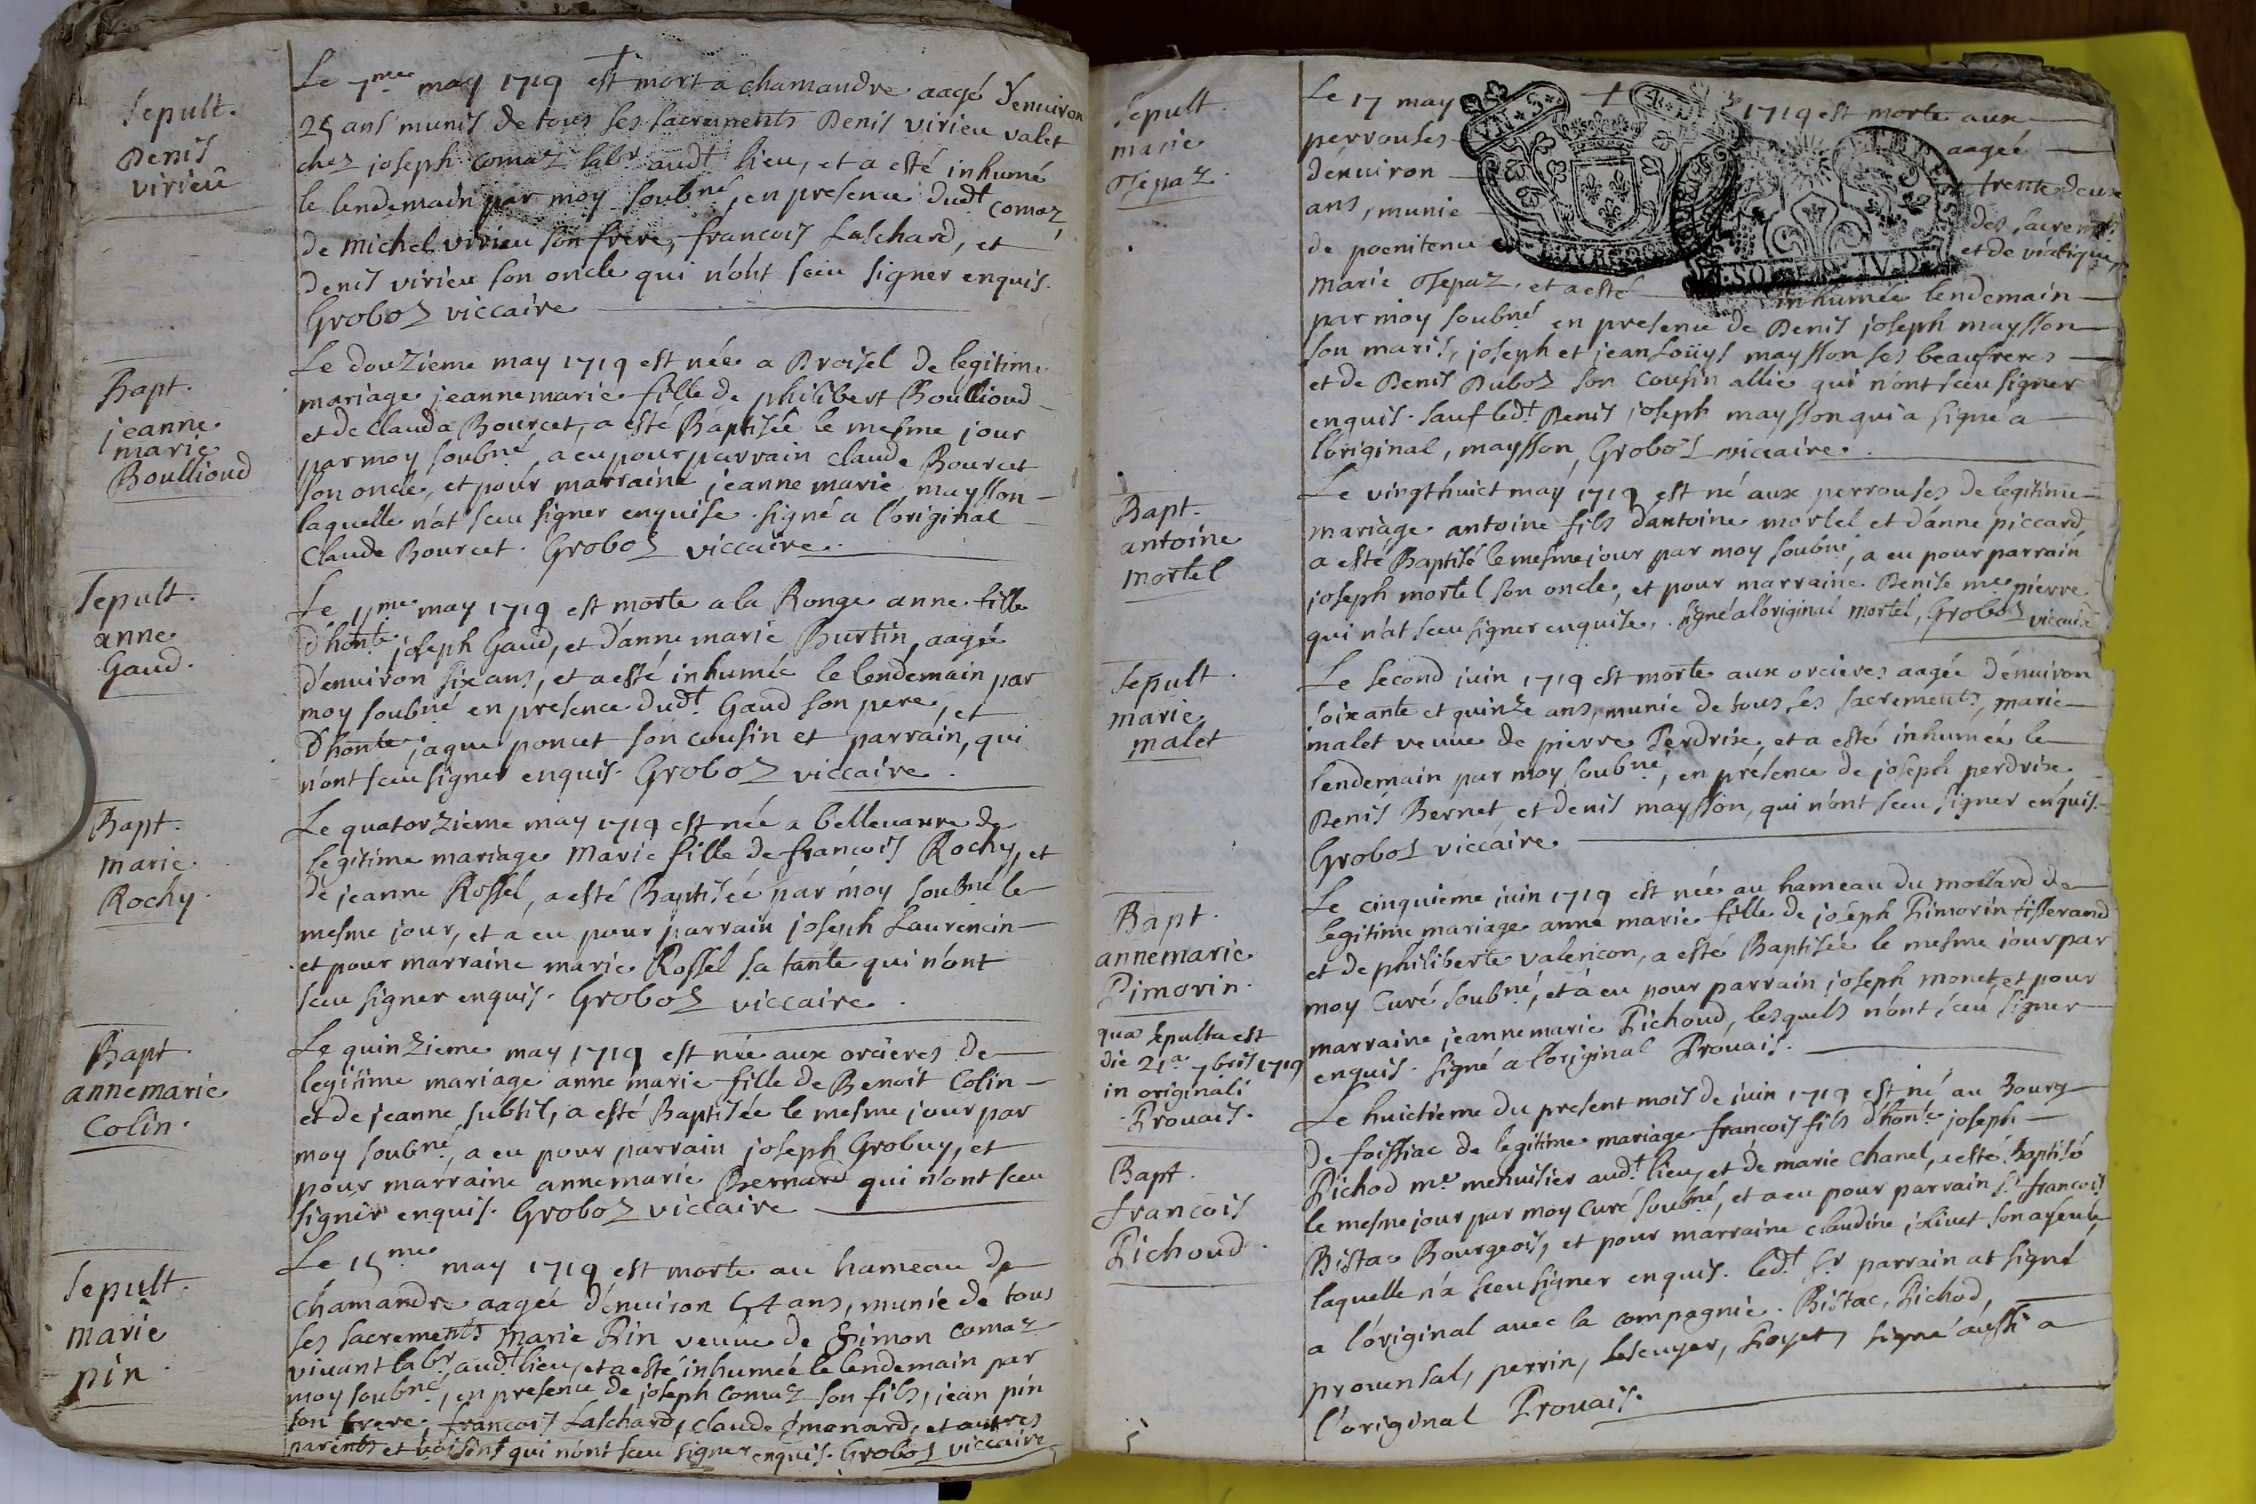 Sepult.
Denis
virieu
Le 7me may 1719 est mort a chamandre aagé d'enuiron
25 ans munis de tous ses sacrements Denis virieu valet
chez joseph comaz labr audt lieu, et a esté inhumé
le lendemain par moy soubné, en presence dudt comaz,
de michel virieu son frere, francois Laschard, et
denis virieu son oncle qui n'ont sceu signer enquis.
Groboz viccaire
Bapt.
jeanne
marie
Boullioud
Le douzieme may 1719 est née a Broisel de legitime
mariage jeanne marie fille de philibert Boullioud
et de clauda Bourcet, a esté Baptisée le mesme jour
par moy soubné, a eu pour parrain claude Bourcet
son oncle, et pour marraine jeanne marie maysson
laquelle n'at sceu signer enquise. signé a l'original
Claude Bourcet. Groboz viccaire.
Sepult.
anne
Gaud.
Le 11me may 1719 est morte a la Ronge anne fille
d'honte joseph Gaud, et d'anne marie Burtin, aagée
d'enuiron six ans, et a esté inhumée le lendemain par
moy soubné en presence dudt. Gaud son pere, et
d'honte jaque poncet son cousin et parrain, qui
n'ont sceu signer enquis. Groboz viccaire.
Bapt.
marie
Rochy.
Le quatorzieme may 1719 est née a bellevaure de
legitime mariage Marie fille de francois Rochy, et
de jeanne Rossel, a esté Baptisée par moy soubné le
mesme jour, et a eu pour parrain joseph Laurencin
et pour marraine marie Rossel sa tante qui n'ont
sceu signer enquis. Groboz viccaire.
Bapt
annemarie
Colin.
Le quinzieme may 1719 est née aux orcieres de
legitime mariage anne marie fille de Benoit Colin
et de jeanne subtil, a esté Baptisée le mesme jour par
moy soubné, a eu pour parrain joseph Grobuy, et
pour marraine annemarie Bernard qui n'ont sceu
signer enquis. Groboz viccaire
Sepult.
marie
pin.
Le 15me may 1719 est morte au hameau de
chamandre aagée d'enuiron 54 ans, munie de tous
ses sacrements Marie Pin veuve de Simon comaz
viuant labr audt lieu, et a esté inhumée le lendemain par
moy soubné, en presence de joseph comaz son fils, jean pin
son frere, francois Laschard, claude emonard, et autres
parents et voisins qui n'ont sceu signer enquis. Groboz viccaire
Sepult.
marie
Tepaz.
Le 17 may 1719 est morte aux
perrouses aagée
d'enuiron trente deux
ans, munie des sacremts
de poenitence et de viatique
marie Tepaz, et a esté inhumée lendemain
par moy soubné en presence de Denis joseph maysson
son maris, joseph et jean Louys maysson ses beaufreres
et de Denis Duboz son cousin allié qui n'ont sceu signer
enquis. sauf ledt Denis joseph maysson qui a signé a
l'original, maysson, Groboz viccaire.
Bapt.
antoine
mortel
Le vingthuict may 1719 est né aux perrouses de legitime
mariage antoine fils d'antoine mortel et d'anne piccard,
a esté Baptisé le mesme jour par moy soubné, a eu pour parrain
joseph mortel son oncle, et pour marraine Denise me pierre
qui n'at sceu signer enquise. signé a l'original mortel, Groboz viccaire
Sepult.
marie
malet
Le second juin 1719 est morte aux orcieres aagée d'enuiron
soixante et quinze ans, munie de tous ses sacrements, marie
malet veuve de pierre Perdrix, et a esté inhumée le
lendemain par moy soubné, en présence de joseph perdrix,
Denis Bernet, et denis maysson, qui n'ont sceu signer enquis.
Groboz viccaire.
Bapt.
annemarie
Pimorin.
qua sepulta est
die 21a 7bris 1719
in originali
Prouais.
Le cinquieme juin 1719 est née au hameau du mollard de
legitime mariage anne marie fille de joseph Pimorin tisserand
et de philiberte valencon, a esté Baptisée le mesme jour par
moy Curé soubné, et a eu pour parrain joseph monet, et pour
marraine jeanne marie Pichoud, lesquels n'ont sceu signer
enquis. signé a l'original Prouais.
Bapt.
francois
Pichoud.
Le huictieme du present mois de juin 1719 est né au Bourg
de foissiac de legitime mariage francois fils d'honte joseph
Pichod me menuisier audt lieu, et de marie chanel, a esté Baptisé
le mesme jour par moy Curé soubné, et a eu pour parrain sr francois
Bistac Bourgeois, et pour marraine claudine joliuet son ayeule
laquelle n'a sceu signer enquis. ledt sr parrain at signé
a l'original avec la compagnie. Bistac, Pichod,
prouensal, perrin, Lescuyer, Poyet, signé aussi a
l'original Prouais.